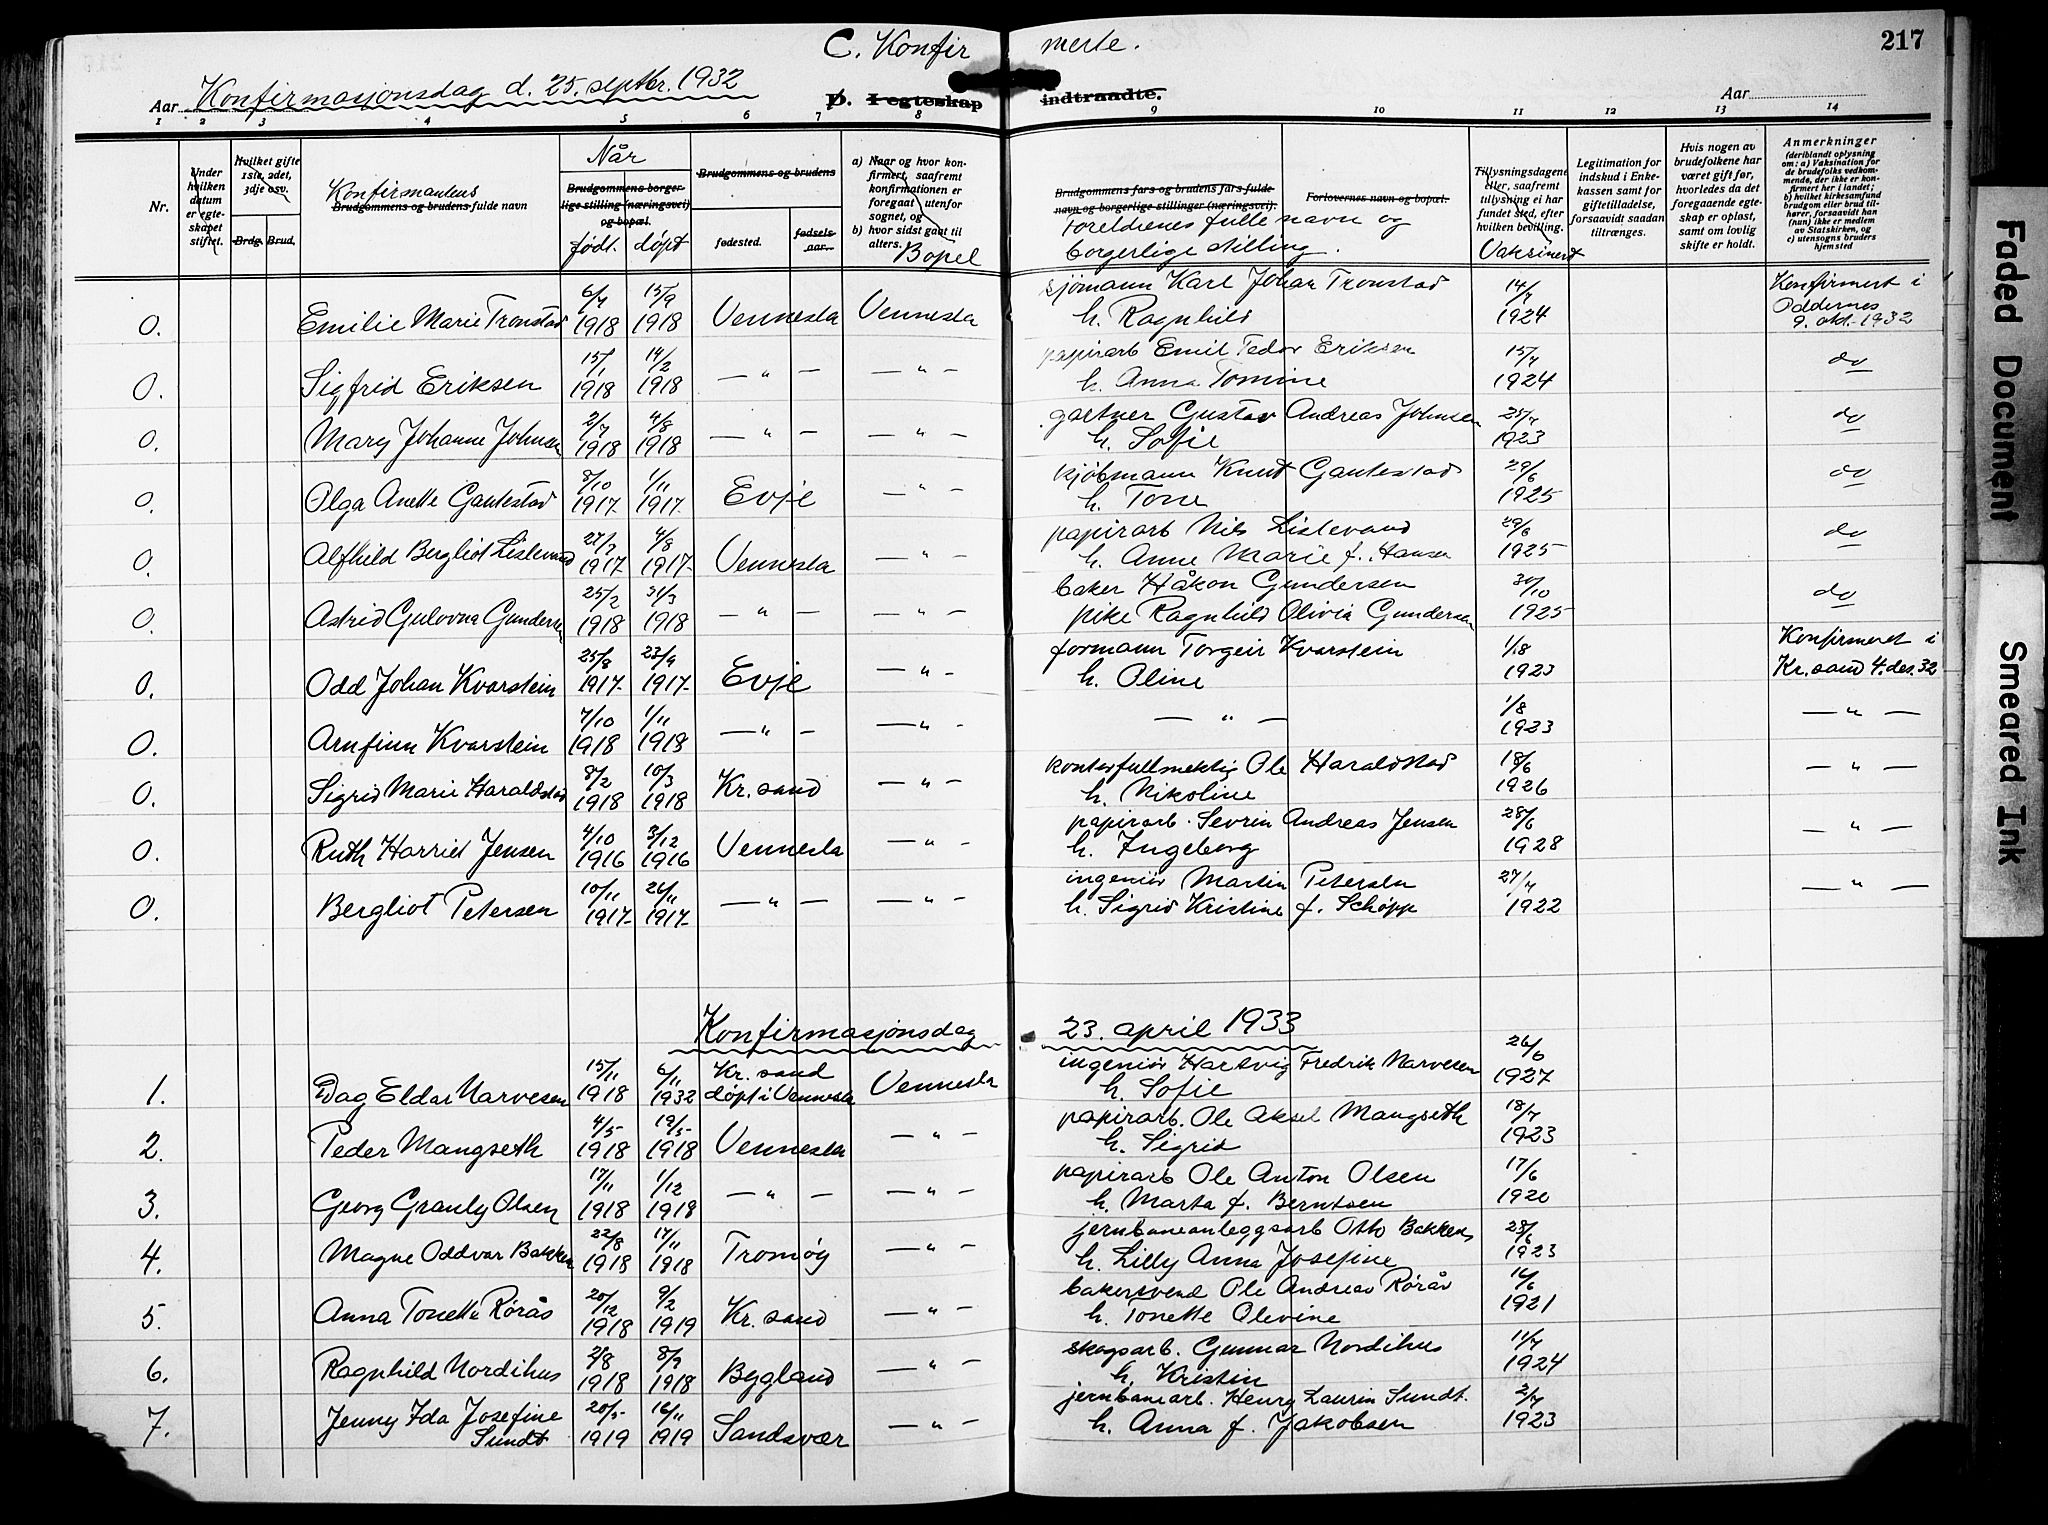 C. Konfirmerte.
217
Aar Konfirmasjonsdag d. 25. septbr. 1932
D. I egteskap indtraadte.
Aar
1 2 3 4 5 6 7 8 9 10 11 12 13 14
Nr.
Under hvilken datum er egteskapet stiftet.
Hvilket gifte 1ste, 2det, 3dje osv.
Brdg. Brud.
Konfirmantens
Brudgommens og brudens fulde navn
Når
Brudgommens borgerlige stilling (næringsvei) og bopæl.
født. døpt
Brudgommens og brudens
fødested. fødselsaar.
a) Naar og hvor konfirmert, saafremt konfirmationen er foregaaet utenfor sognet, og
b) hvor sidst gaat til alters.
Bopel
Brudgommens fars og brudens fars fulde navn og borgerlige stillinger (næringsvei).
Foreldrenes fulle navn og
borgerlige stilling.
Forlovernes navn og bopæl.
Tillysningsdagene eller, saafremt tillysning ei har fundet sted, efter hvilken bevilling.
Vaksinert
Legitimation for indskud i Enkekassen samt for giftetilladelse, forsaavidt saadan tiltrænges.
Hvis nogen av brudefolkene har været gift før, hvorledes da det foregaaende egteskap er opløst, samt om lovlig skifte er holdt.
Anmerkninger (deriblandt oplysning om: a) Vaksination for de brudefolks vedkommende, der ikke er konfirmert her i landet; b) hvilket kirkesamfund brudgom eller brud tilhører, forsaavidt han (hun) ikke er medlem av Statskirken, og c) utensogns bruders hjemsted
0. Emilie Marie Tronstad 6/7 1918 15/9 1918 Vennesla Vennesla sjømann Karl Johan Tronstad h. Ragnhild 14/7 1924 Konfirmert i Oddernes 9. okt. 1932
0. Sigfrid Eriksen 15/1 1918 14/2 1918 — " — — " — papirarb Emil Tedor Eriksen h. Anna Tomine 15/7 1924 do
0. Mary Johanne Johnsen 2/7 1918 4/8 1918 — " — — " — gartner Gustav Andreas Johnsen h. Sofie 25/7 1923 do
0. Olga Anette Gautestad 8/10 1917 1/11 1917 Evje — " — kjøbmann Knut Gautestad h. Tone 29/6 1925 do
0. Alfhild Bergliot Listevand 1917 4/8 1917 Vennesla — " — papirarb Nils Listevand h. Anne Marie f. Hansen 29/6 1925 do
0. Astrid Gulovna Gundersen 25/2 1918 31/3 1918 — " — — " — baker Håkon Gundersen pike Ragnhild Olivia Gundersen 30/10 1925 do
0. Odd Johan Kvarstein 25/8 1917 23/9 1917 Evje — " — formann Torgeir Kvarstein h. Oline 1/8 1923 Konfirmeret i Kr. sand 4. des. 32
0. Arnfinn Kvarstein 7/10 1918 1/11 1918 — " — — " — — " — 1/8 1923 — " —
0. Sigrid Marie Haraldstad 8/2 1918 10/3 1918 Kr. sand — " — kontorfullmektig Ole Haraldstad h. Nikoline 18/6 1926 — " —
0. Ruth Harriet Jensen 4/10 1916 3/12 1916 Vennesla — " — papirarb. Sevrin Andreas Jensen h. Ingeborg 28/6 1928 — " —
0. Bergliot Petersen 10/11 1917 26/11 1917 — " — — " — ingeniør Martin Petersen h. Sigrid Kristine f. Schøpp 27/7 1922 — " —
Konfirmasjonsdag 23. april 1933
1. Dag Eldar Narvesen 15/11 1918 6/11 1932 Kr. sand døpt i Vennesla Vennesla ingeniør Hartvig Fredrik Narvesen h. Sofie 26/6 1927
2. Peder Mangseth 4/5 1918 19/5 1918 Vennesla — " — papirarb. Ole Aksel Mangseth h. Sigrid 18/7 1923
3. Georg Granly Olsen 17/11 1918 1/12 1918 — " — — " — papirarb Ole Anton Olsen h. Marta f. Berntsen 17/6 1920
4. Magne Oddvar Bakken 22/8 1918 17/11 1918 Tromøy — " — jernbaneanleggsarb Otto Bakken h. Lilly Anna Josefine 28/6 1923
5. Anna Tonette Rørås 20/12 1918 9/2 1919 Kr. sand — " — bakersvend Ole Andreas Rørås h. Tonette Olevine 16/6 1921
6. Ragnhild Nordihus 2/8 1918 8/9 1918 Bygland — " — skogsarb. Gunnar Nordihus h. Kristin 11/7 1924
7. Jenny Ida Josefine Sundt 20/5 1919 16/11 1919 Sandsvær — " — jernbanearb. Henry Laurin Sundt. h. Anna f. Jakobsen 2/7 1923
Faded Document
Smeared Ink